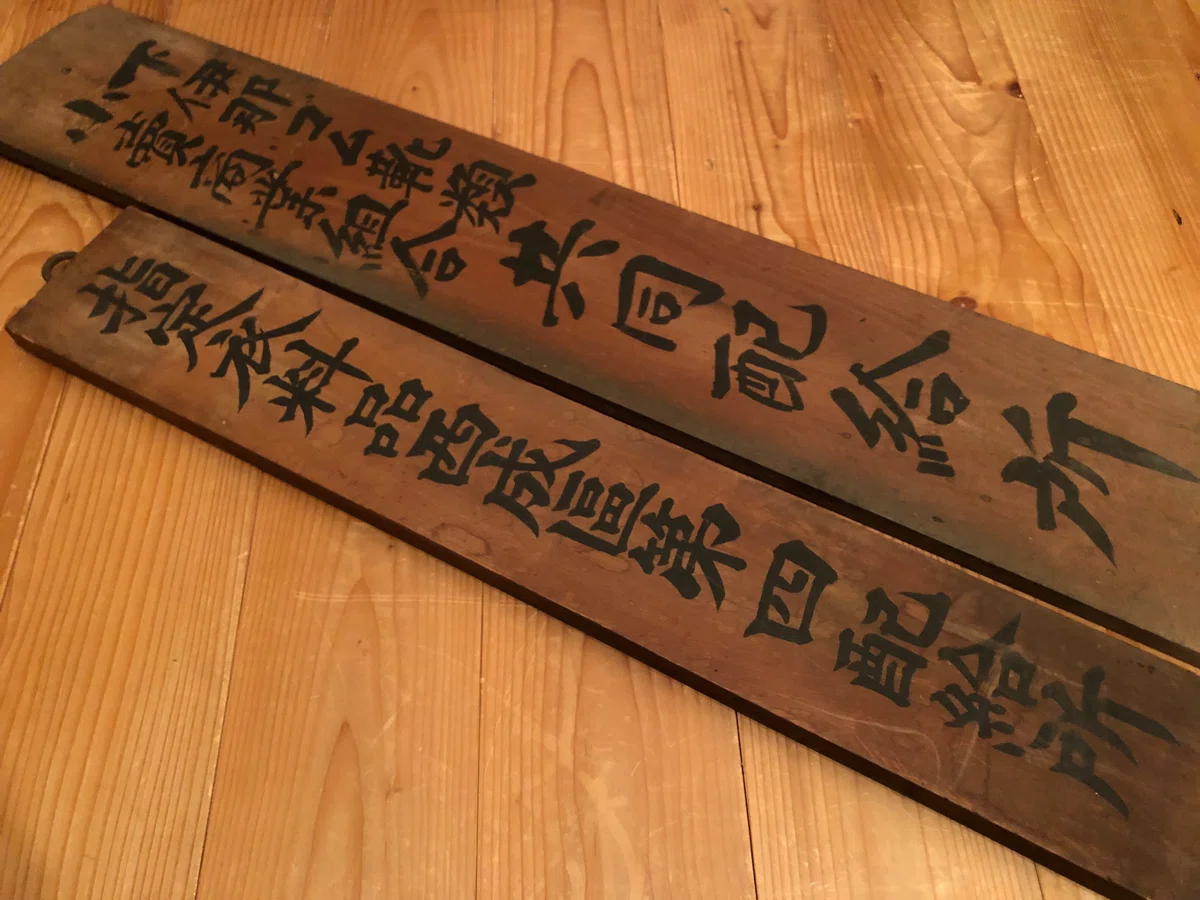 下伊那ゴム靴類
小賣商業組合
共同配給所
指定衣料品西成區第四配給所